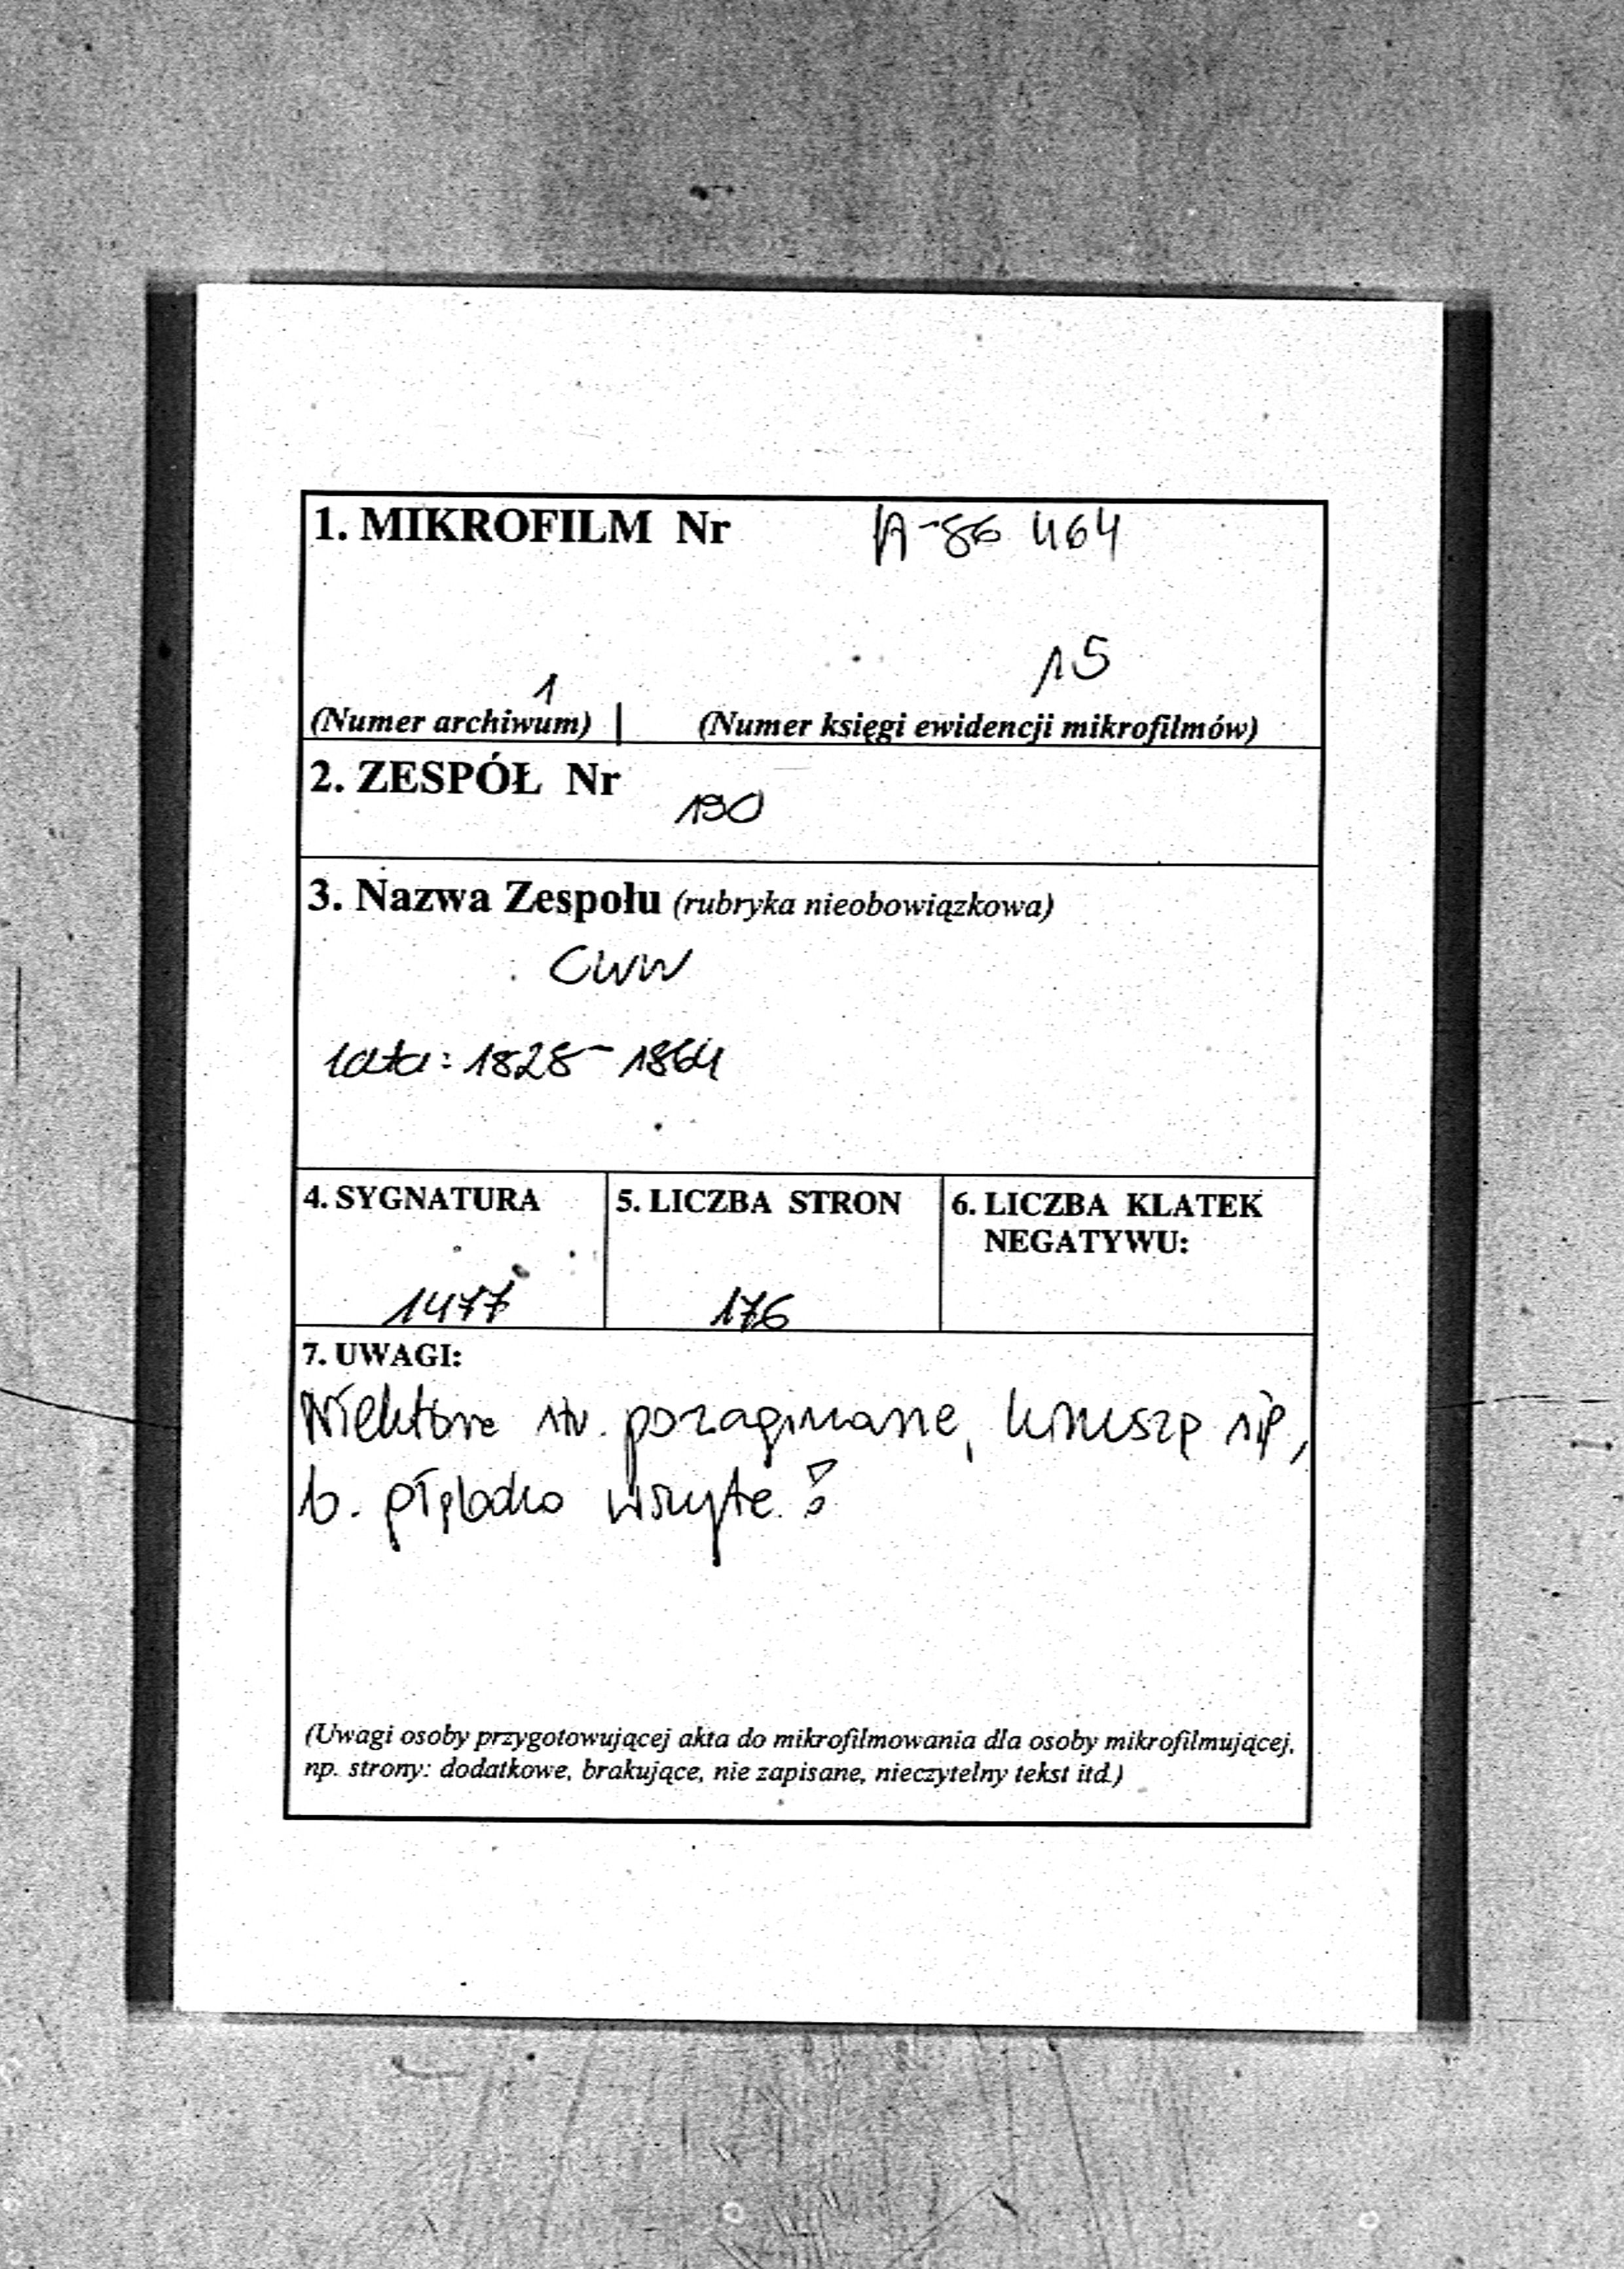 1. MIKROFILM Nr A-86 464
1 15
(Numer archiwum) | (Numer księgi ewidencji mikrofilmów)
2. ZESPÓŁ Nr 190
3. Nazwa Zespołu (rubryka nieobowiązkowa)
CWW
lata: 1828-1864
4. SYGNATURA 5. LICZBA STRON 6. LICZBA KLATEK
NEGATYWU:
1477 176
7. UWAGI:
Niektóre str. pozaginane, kruszą się,
b. głęboko wszyte!
(Uwagi osoby przygotowującej akta do mikrofilmowania dla osoby mikrofilmującej,
np. strony: dodatkowe, brakujące, nie zapisane, nieczytelny tekst itd.)